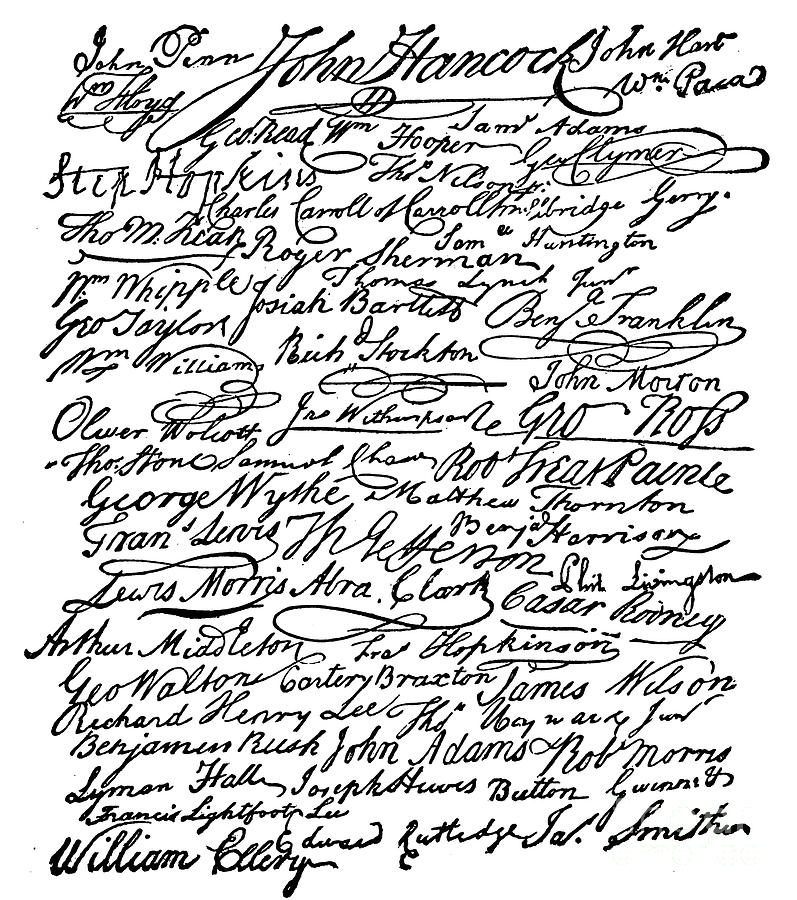 John Penn John Hancock John Hart
Wm Floyd Wm. Paca
Geo. Read Wm Hooper Saml Adams
Geo Clymer
Step Hopkins Thos Nelson jr.
Charles Carroll of Carrollton Elbridge Gerry.
Tho M. Kean Roger Sherman Saml Huntington
Wm Whipple Thomas Lynch Junr
Josiah Bartlett Benj Franklin
Geo Taylor
Wm Williams Richd Stockton
John Morton
Oliver Wolcott Jno Witherspoon Geo Ross
Thos. Stone Samuel Chase Robt Treat Paine
George Wythe Matthew Thornton
Frans Lewis Th Jefferson Benj Harrison
Lewis Morris Abra. Clark Phil Livingston
Casar Rodney
Arthur Middleton Fras Hopkinson
Geo Walton Carter Braxton James Wilson
Richard Henry Lee Thos Heyward Junr
Benjamin Rush John Adams Robt Morris
Lyman Hall Joseph Hewes Button Gwinnett
Francis Lightfoot Lee
William Ellery Edward Rutledge Jas. Smith